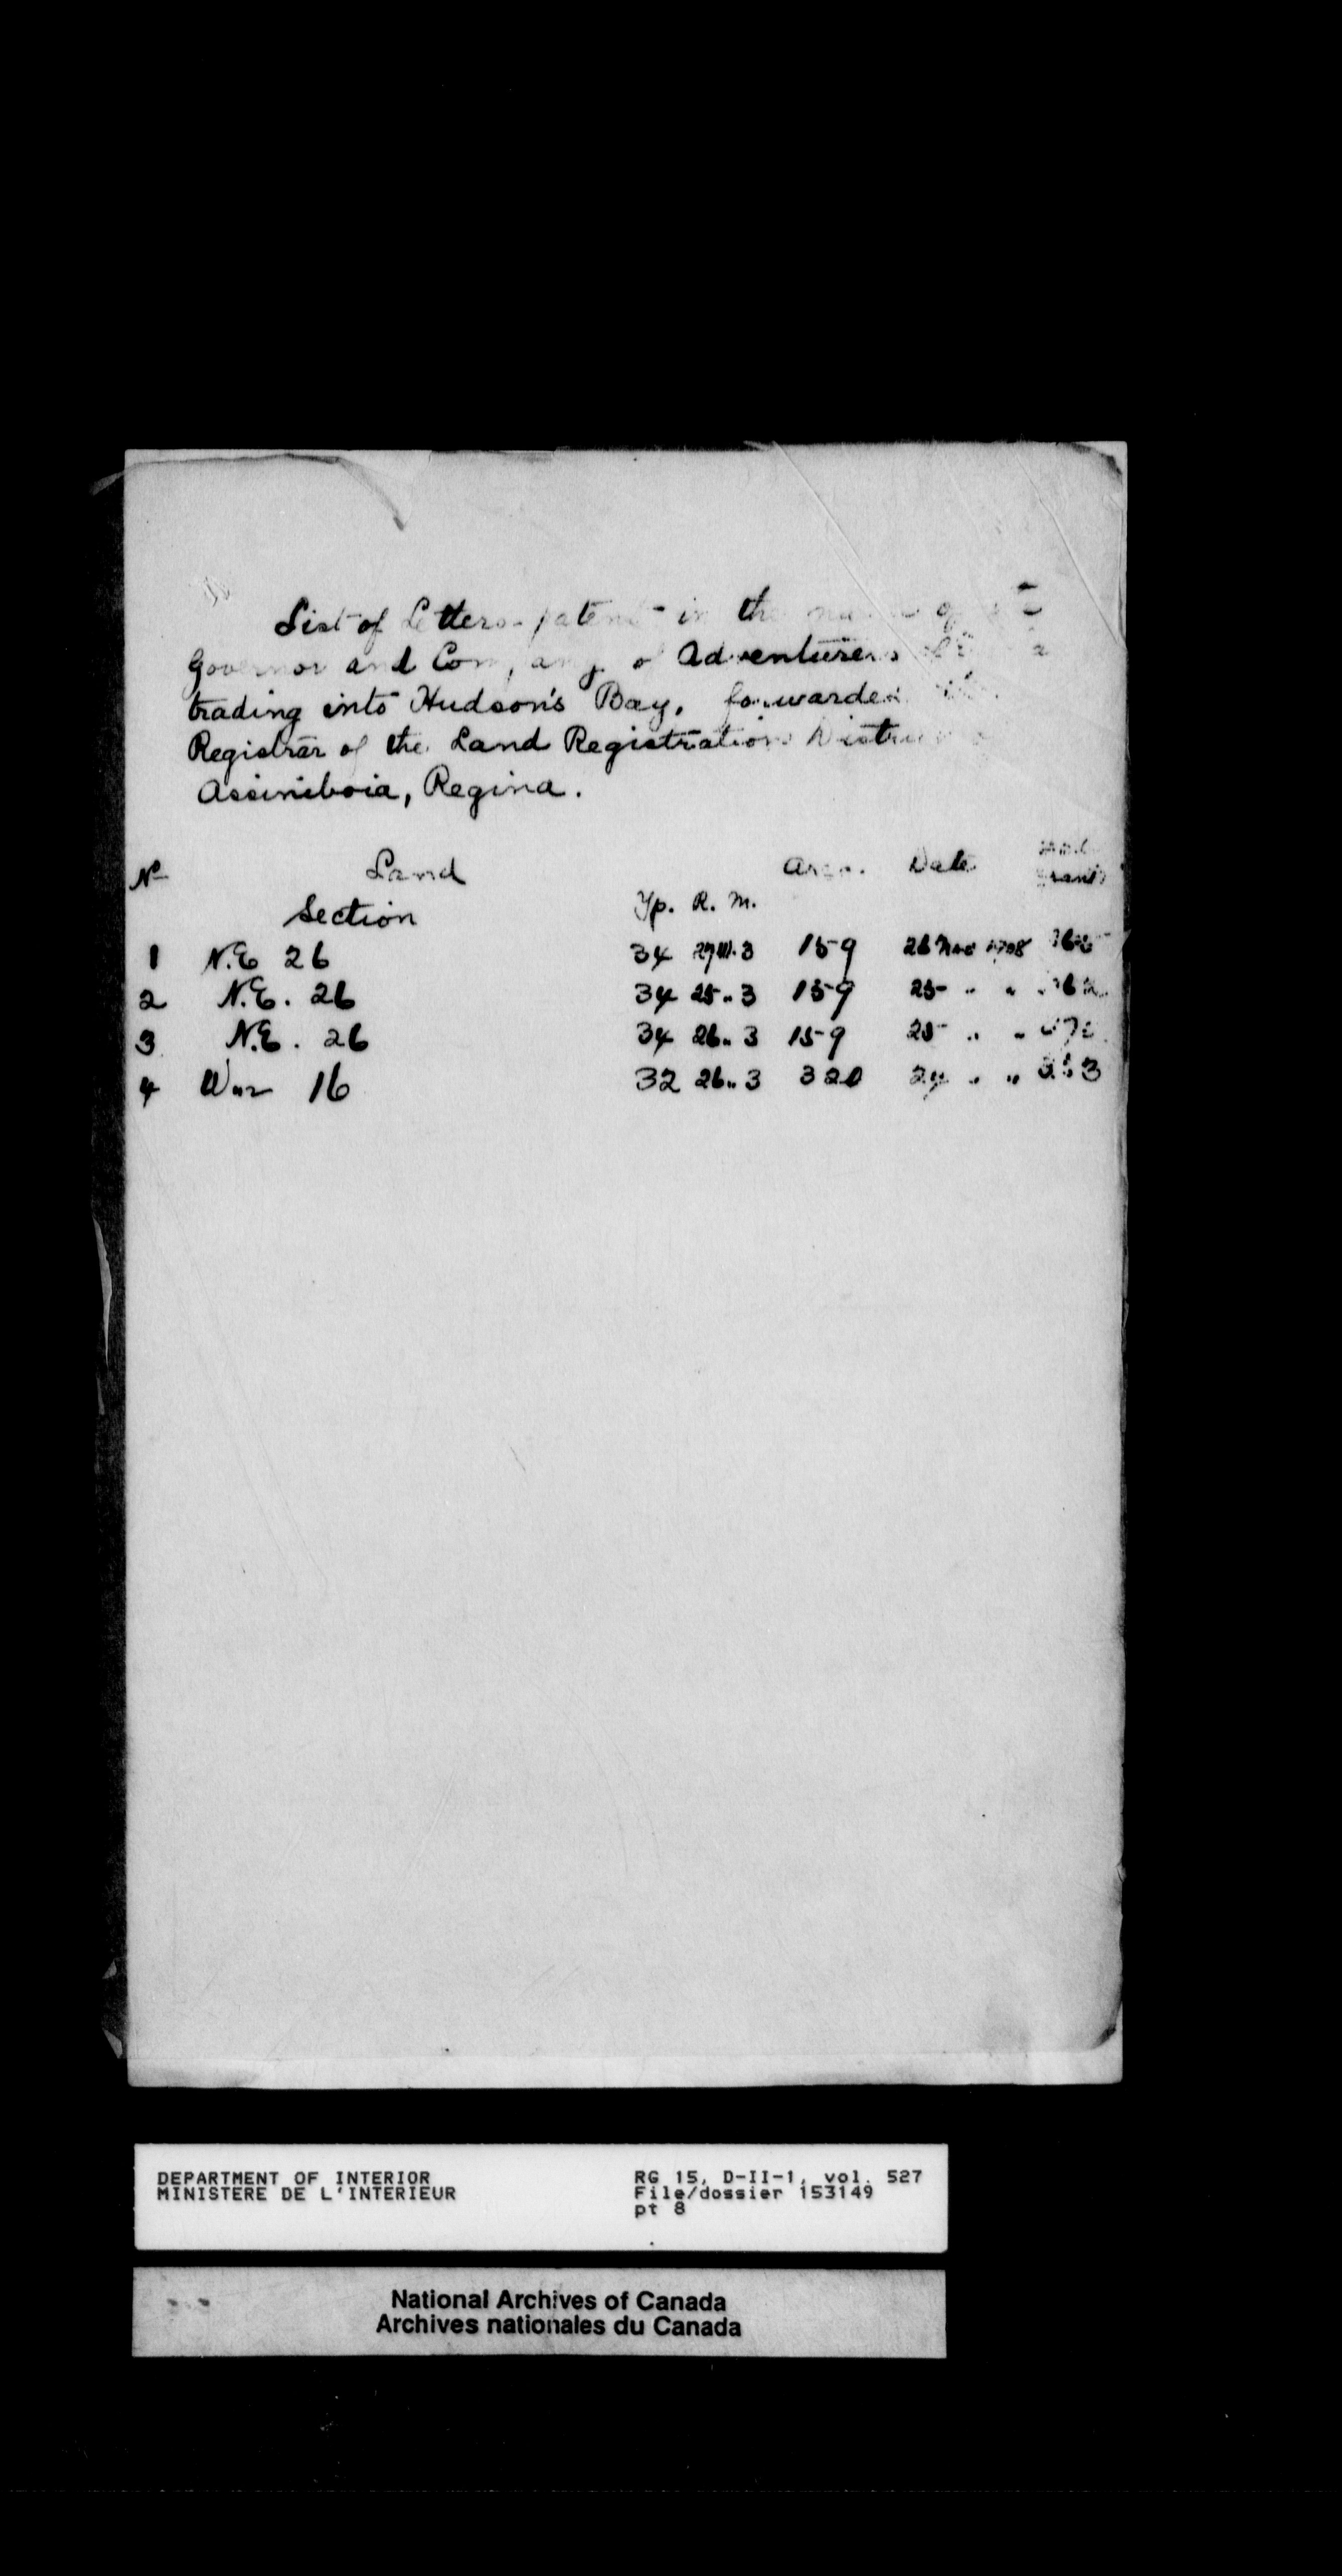 List of Letters patent in the name of
Governor and Company of Adventurers
trading into Hudson's Bay, forwarded
Registrar of the Land Registration District
Assiniboia, Regina.
No Land Area. Date
Section Tp. R. M.
1 N.E 26 34 27 W. 3 159 26 Nov 1908
2 N.E. 26 34 25 " 3 159 25 " "
3 N.E. 26 34 26 " 3 159 25 " "
4 W½ 16 32 26 " 3 320 24 " "
DEPARTMENT OF INTERIOR RG 15, D-II-1, vol. 527
MINISTERE DE L'INTERIEUR File/dossier 153149
pt 8
National Archives of Canada
Archives nationales du Canada